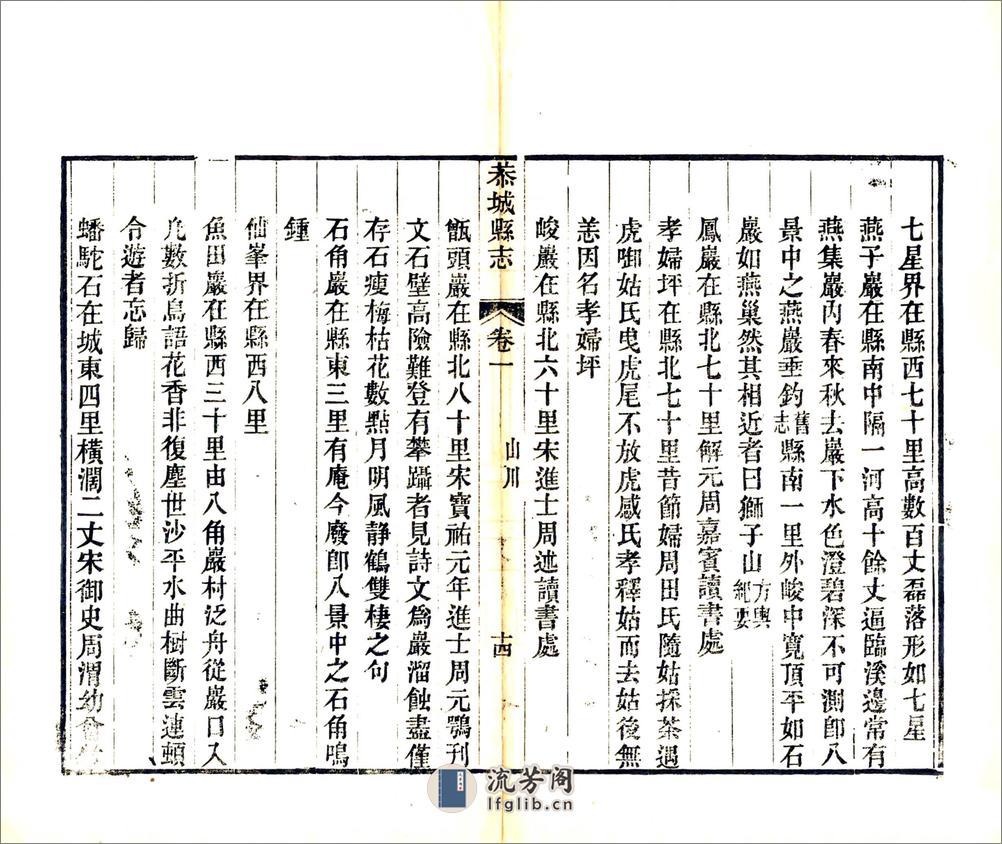 七星界在縣西七十里高數百丈磊落形如七星
燕子巖在縣南中隔一河高十餘丈逼臨溪邊常有
燕集巖內春來秋去巖下水色澄碧深不可測卽八
景中之燕巖垂釣舊志縣南一里外峻中寬頂平如石
巖如燕巢然其相近者曰獅子山方輿紀要
鳳巖在縣北七十里解元周嘉賓讀書處
孝婦坪在縣北七十里昔節婦周田氏隨姑採茶遇
虎啣姑氏曳虎尾不放虎感氏孝釋姑而去姑後無
恙因名孝婦坪
峻巖在縣北六十里宋進士周述讀書處
恭城縣志
卷一
山川
十四
甑頭巖在縣北八十里宋寶祐元年進士周元鶚刊
文石壁高險難登有攀躡者見詩文爲巖溜蝕盡僅
存石瘦梅枯花數點月明風静鶴雙棲之句
石角巖在縣東三里有庵今廢卽八景中之石角鳴
鍾
仙峯界在縣西八里
魚田巖在縣西三十里由八角巖村泛舟從巖口入
凡數折鳥語花香非復塵世沙平水曲樹斷雲連頓
令遊者忘歸
蟠駝石在城東四里橫濶二丈宋御史周渭幼曾
流芳阁
lfglib.cn